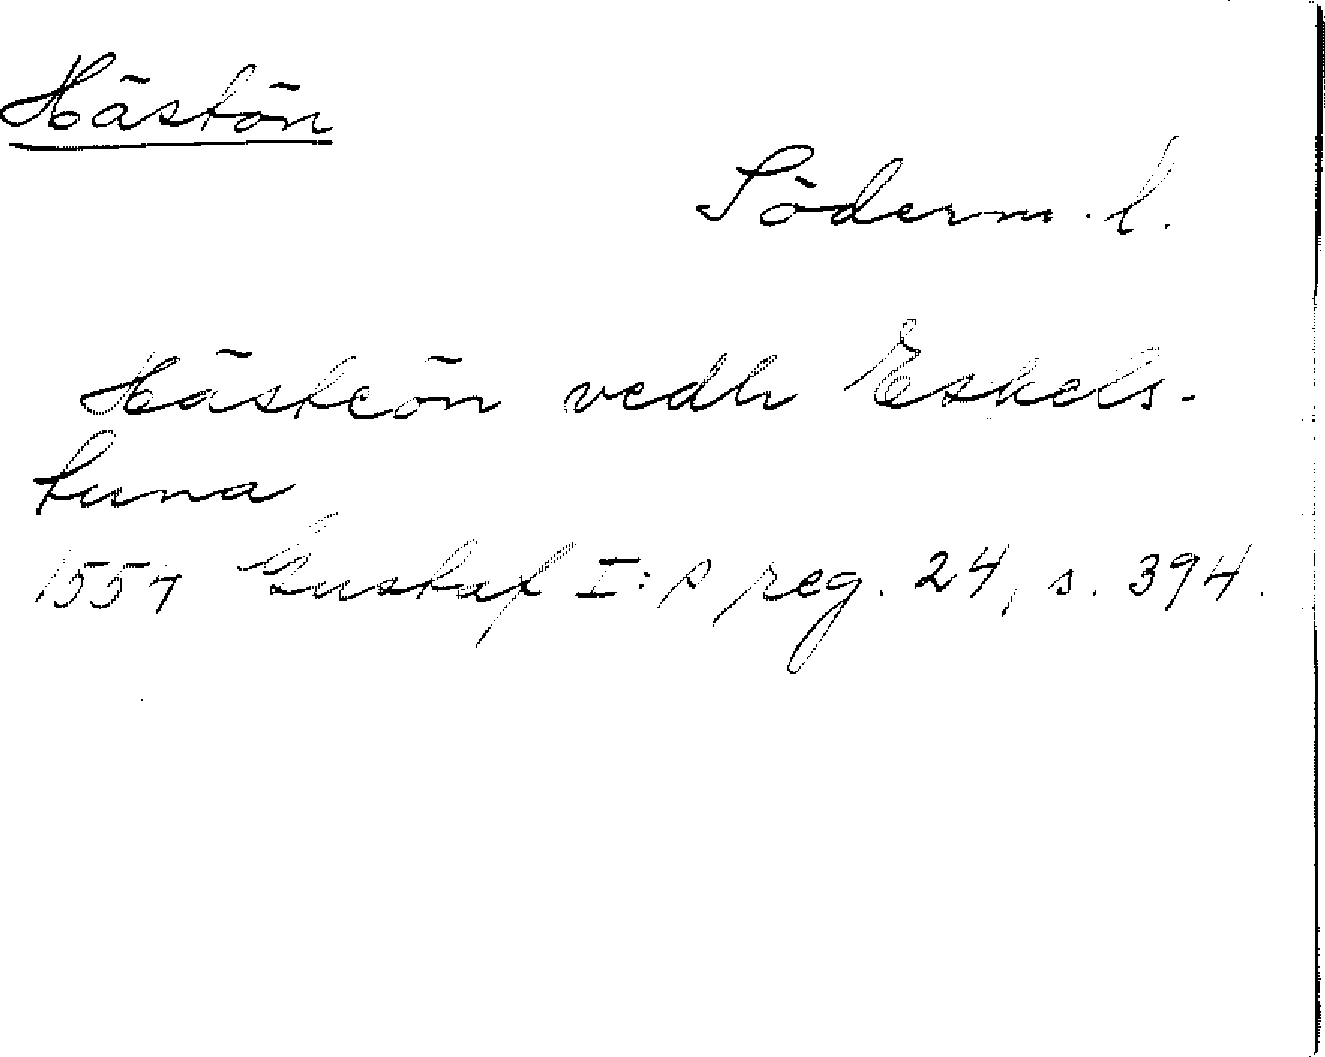 Hästön
Söderm. l.
Hästeön vedh Eskels-
tuna
1554 Gustaf I:s reg. 24, s. 394.